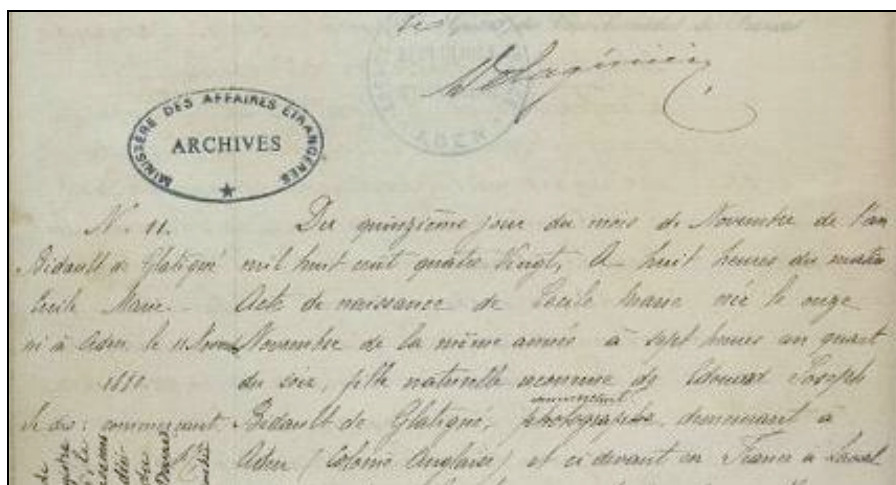 MINISTÈRE DES AFFAIRES ETRANGÈRES
ARCHIVES
ADEN
N. 11.
Bidault de Glatigné
Cecile Marie
né à Aden le 11 Novembre
1880.
Je dis : commercant
Du quinzième jour du mois de Novembre de l'an
mil huit cent quatre vingt, A huit heures du matin
Acte de naissance de Cecile Marie née le onze
Novembre de la même année à sept heures un quart
du soir, fille naturelle reconnue de Edouard Joseph
commercant
Bidault de Glatigné, photographe, demeurant à
Aden (Colonie Anglaise) et ci devant en France à Laval